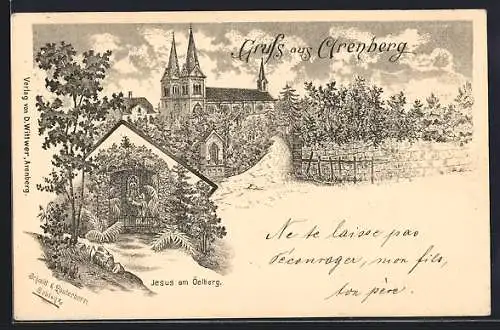 Gruss aus Arenberg
Verlag von D. Wittwer, Arenberg.
Jesus am Oelberg.
Ne te laisse pas
décourager, mon fils,
ton père.
Schmidt &